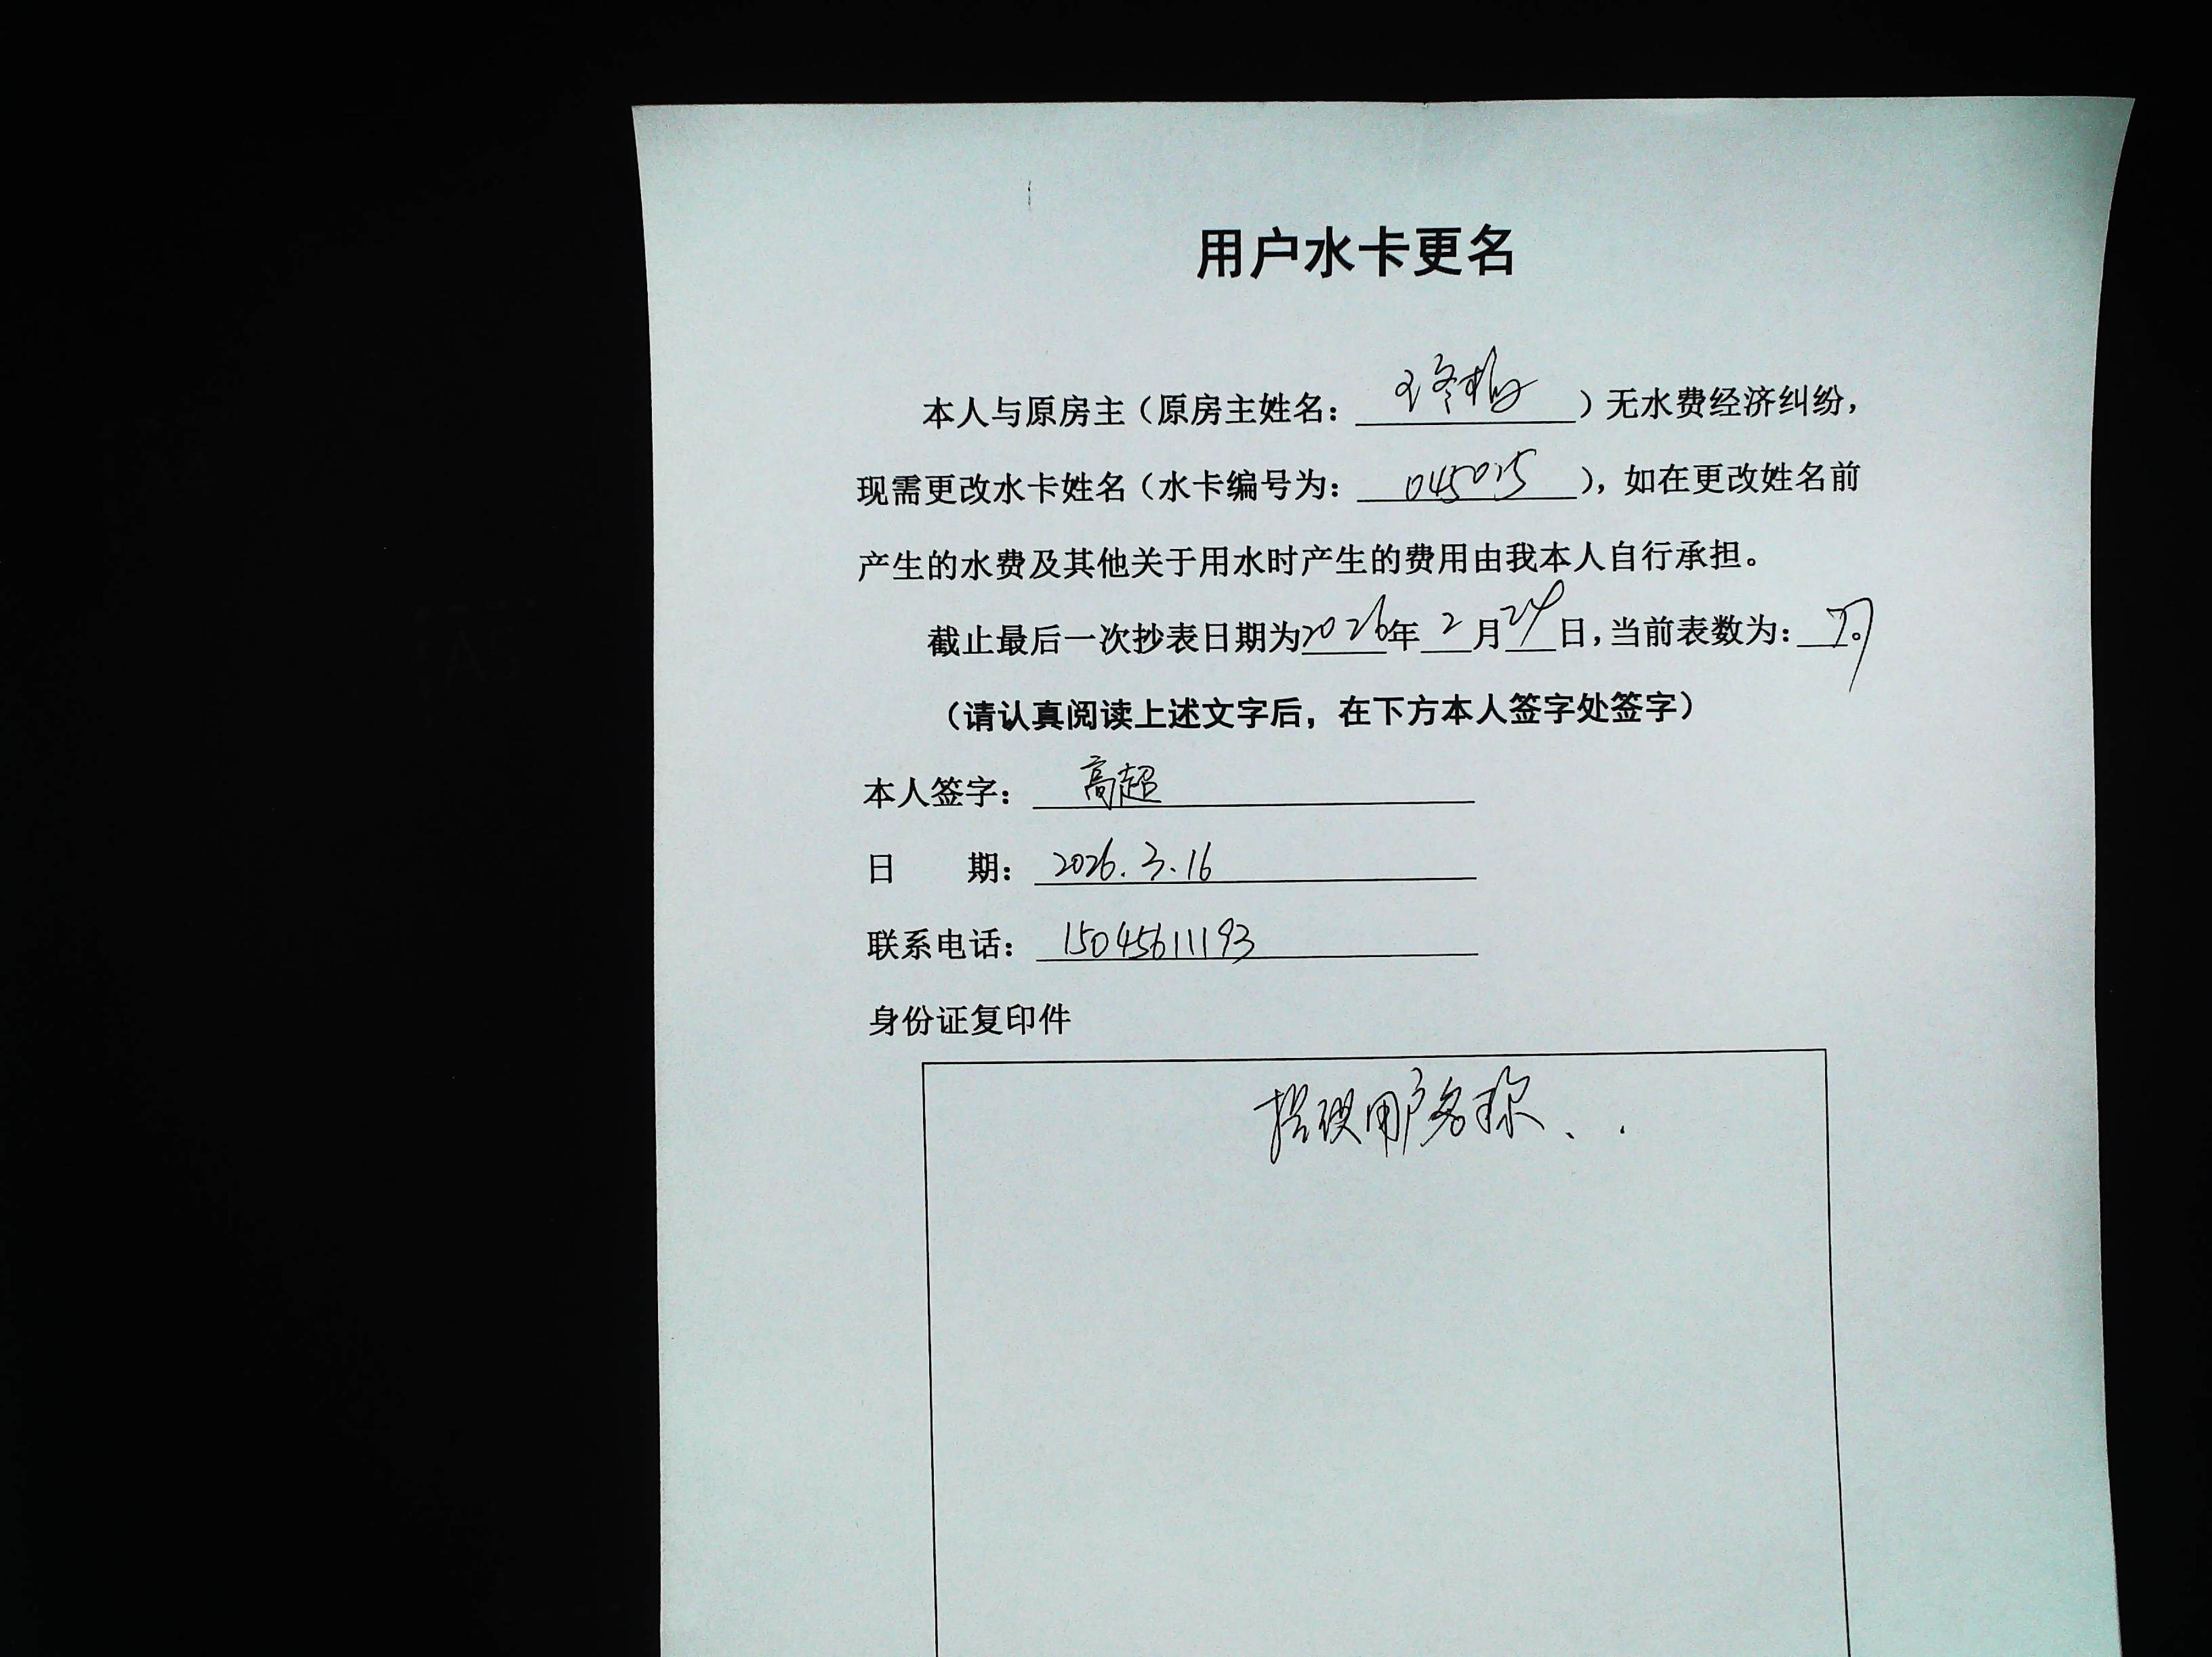 用户水卡更名
本人与原房主（原房主姓名：王冬梅）无水费经济纠纷，
现需更改水卡姓名（水卡编号为：045015），如在更改姓名前
产生的水费及其他关于用水时产生的费用由我本人自行承担。
截止最后一次抄表日期为2026年2月24日，当前表数为：
（请认真阅读上述文字后，在下方本人签字处签字）
本人签字：高超
日 期：2026.3.16
联系电话：15045611193
身份证复印件
错误用户名称、.